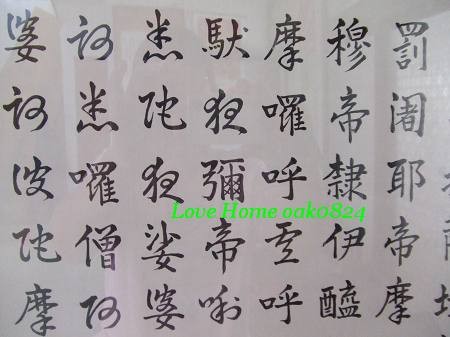 罰闍耶帝摩
穆帝隸伊醯
摩囉呼呼
馱夜彌帝唎
悉陀夜娑婆
訶悉囉僧阿
婆訶波陀摩
Love Home oak0824